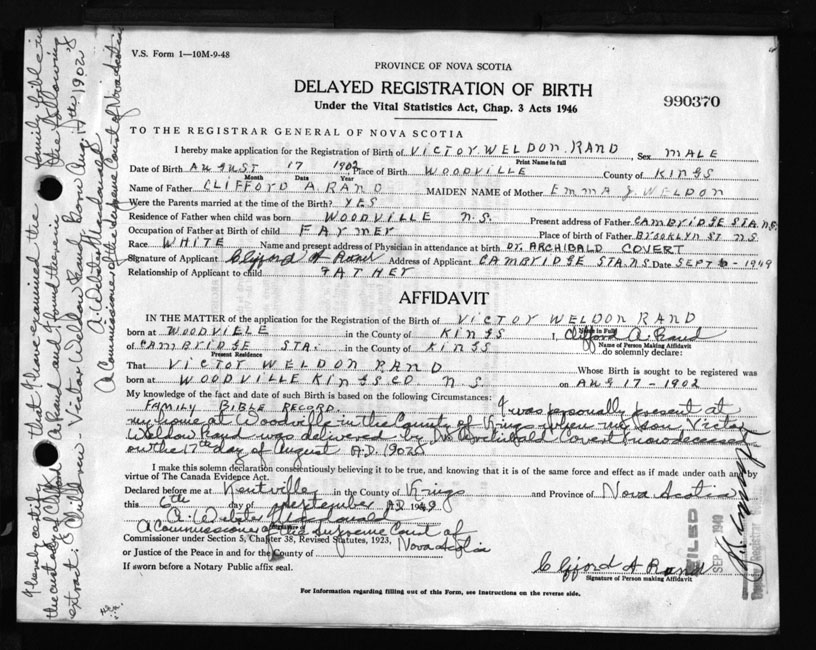 V.S. Form 1—10M-9-48
PROVINCE OF NOVA SCOTIA
DELAYED REGISTRATION OF BIRTH
Under the Vital Statistics Act, Chap. 3 Acts 1946
990370
TO THE REGISTRAR GENERAL OF NOVA SCOTIA
I hereby make application for the Registration of Birth of VICTOR WELDON RAND, Sex MALE
Print Name in full
Date of Birth AUGUST 17 1902, Place of Birth WOODVILLE County of KINGS
Month Date Year
Name of Father CLIFFORD A. RAND MAIDEN NAME of Mother EMMA J. WELDON
Were the Parents married at the time of the Birth? YES
Residence of Father when child was born WOODVILLE N.S. Present address of Father CAMBRIDGE STA. N.S.
Occupation of Father at Birth of child FARMER Place of birth of Father BROOKLYN ST N.S.
Race WHITE Name and present address of Physician in attendance at birth DR. ARCHIBALD COVERT
Signature of Applicant Clifford A Rand Address of Applicant CAMBRIDGE STA. N.S. Date SEPT 6 - 1949
Relationship of Applicant to child FATHER
AFFIDAVIT
IN THE MATTER of the application for the Registration of the Birth of VICTOR WELDON RAND
Name in Full
born at WOODVILLE in the County of KINGS I, Clifford A. Rand
Name of Person Making Affidavit
of CAMBRIDGE STA. in the County of KINGS do solemnly declare:
Present Residence
That VICTOR WELDON RAND Whose Birth is sought to be registered was
born at WOODVILLE KINGS CO N.S. on AUG 17 - 1902
My knowledge of the fact and date of such Birth is based on the following Circumstances:
FAMILY BIBLE RECORD. I was personally present at
my home at Woodville in the County of Kings when my son, Victor
Weldon Rand was delivered by Dr. Archibald Covert now deceased
on the 17th day of August A.D. 1902.
I make this solemn declaration conscientiously believing it to be true, and knowing that it is of the same force and effect as if made under oath and by
virtue of The Canada Evidence Act.
Declared before me at Kentville in the County of Kings and Province of Nova Scotia
this 6th day of September A.D. 1949
A. Webster Macdonald
Signature of
A Commissioner of the Supreme Court of
Commissioner under Section 5, Chapter 38, Revised Statutes, 1923, Nova Scotia
or Justice of the Peace in and for the County of
If sworn before a Notary Public affix seal.
Clifford A Rand
Signature of Person making Affidavit
For Information regarding filling out of this Form, see Instructions on the reverse side.
FILED
SEP 1949
I hereby certify that I have examined the family bible in
the custody of Clifford A Rand and I found therein the following
extract: "Children - Victor Weldon Rand Born Aug. 17th, 1902"
A. Webster Macdonald
A Commissioner of the Supreme Court of Nova Scotia